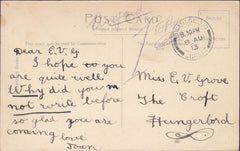 POST CARD
8.30PM
8 AU
13
Dear E.V.G
I hope you
are quite well
Why did you
not write before
so glad you are
coming love
Joan
Miss E.V. Grove
The Croft
Hungerford